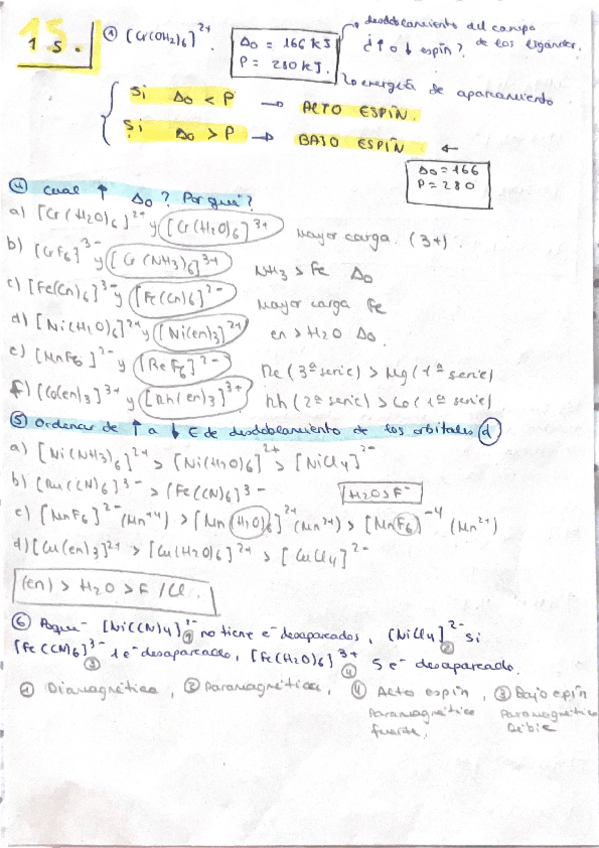 15.
① [Cr(OH2)6]²⁺
Δo = 166 kJ
P = 280 kJ.
desdoblamiento del campo
de los ligandos.
¿↑ o ↓ espín?
energía de apareamiento
Si Δo < P → ALTO ESPÍN.
Si Δo > P → BAJO ESPÍN ←
Δo = 166
P = 280
④ Cual ↑ Δo? Por qué?
a) [Cr(H2O)6]²⁺ y [Cr(H2O)6]³⁺ Mayor carga. (3+).
b) [CrF6]³⁻ y [Cr(NH3)6]³⁺ NH3 > Fe Δo
c) [Fe(CN)6]³⁻ y [Fe(CN)6]²⁻ Mayor carga Fe
d) [Ni(H2O)6]²⁺ y [Ni(en)3]²⁺ en > H2O Δo.
e) [MnF6]²⁻ y [ReF6]²⁻ Re (3ª serie) > Mg (1ª serie)
f) [Co(en)3]³⁺ y [Rh(en)3]³⁺ Rh (2ª serie) > Co (1ª serie)
⑤ Ordenar de ↑ a ↓ E de desdoblamiento de los orbitales d
a) [Ni(NH3)6]²⁺ > [Ni(H2O)6]²⁺ > [NiCl4]²⁻
b) [Ru(CN)6]³⁻ > [Fe(CN)6]³⁻
H2O > F⁻
c) [MnF6]²⁻ (Mn⁺⁴) > [Mn(H2O)6]²⁺ (Mn²⁺) > [MnF6]⁻⁴ (Mn²⁺)
d) [Cu(en)3]²⁺ > [Cu(H2O)6]²⁺ > [CuCl4]²⁻
(en) > H2O > F / Cl.
⑥ Porque [Ni(CN)4]²⁻ ① no tiene e⁻ desapareados, [NiCl4]²⁻ ② si
[Fe(CN)6]³⁻ ③ 1 e⁻ desapareado, [Fe(H2O)6]³⁺ ④ 5 e⁻ desapareado.
① Diamagnética, ② Paramagnética, ④ Alto espín, ③ Bajo espín
Paramagnético Paramagnético
fuerte, débil